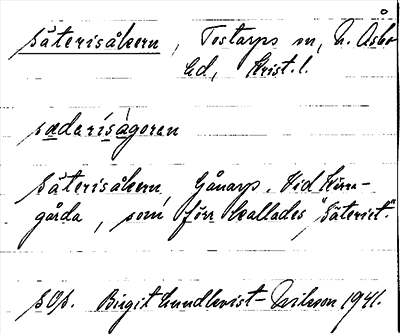 Säterisåkern, Tostarps sn, N. Åsbo
hd, Krist. l.
sædaríságoren
Säterisåkern, Gånarp. Vid Kirre-
gårda, som förr kallades "Säteriet."
SOs. Birgit Lundkvist-Nilsson 1941.